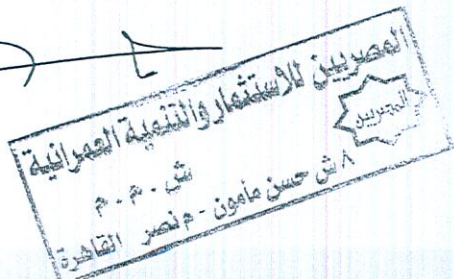 المصريين للاستثمار والتنمية العمرانية
المصريين
ش . م . م
٨ ش حسن مأمون - م نصر القاهرة